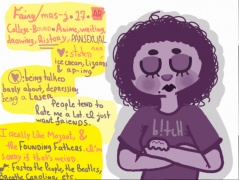 King/mas-j. 27.
College-Bound Anime, writing,
drawing, History, PANSEXUAL
: states,
ice cream, lizards
& ap-ing
: being talked
badly about, depression
being a Loser.
People tend to
Hate me a lot. I just
want friends.
I really like Mozart, &
the Founding Fathers. I'm
sorry if that's weird.
Foster the People, the Beatles,
etc.
b!tch